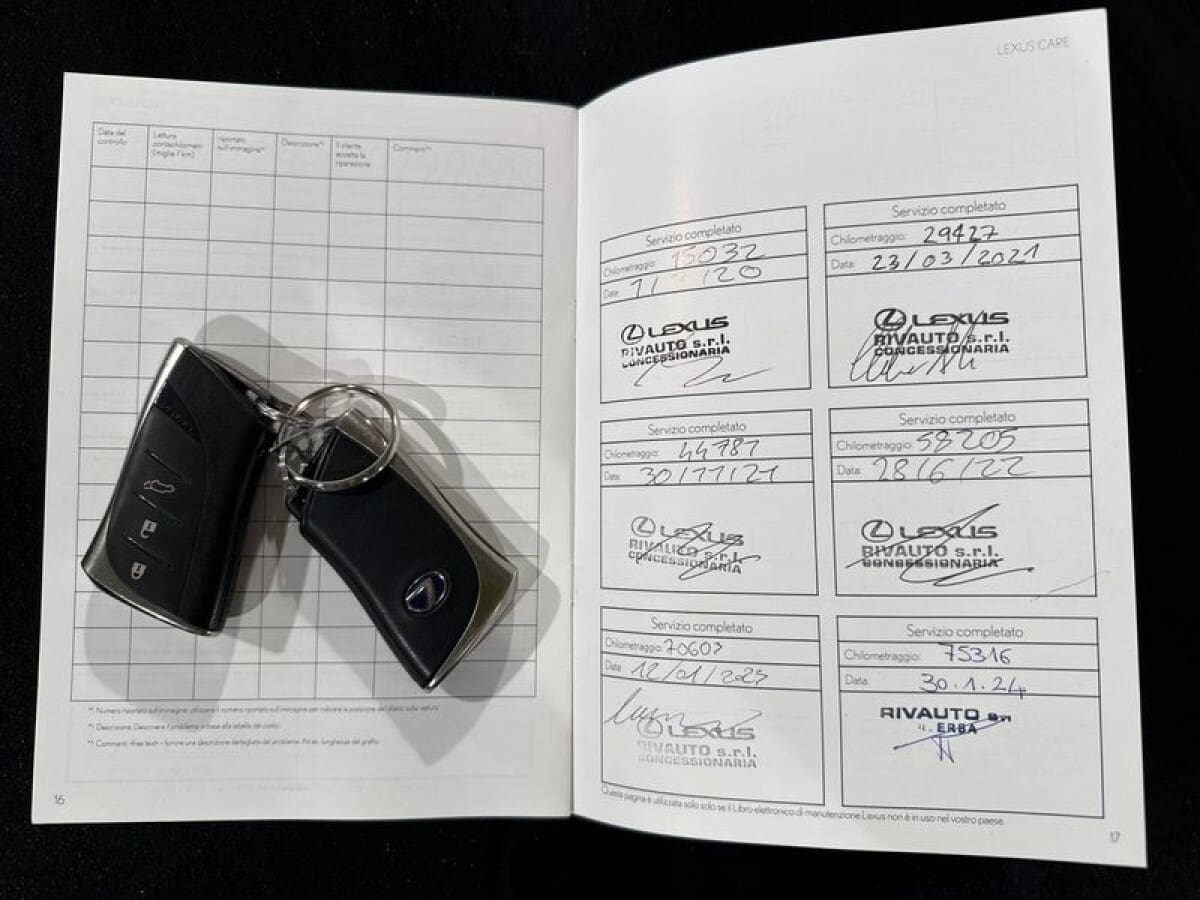 LEXUS CARE
Data del controllo
Lettura contachilometri (miglia / km)
riportato sull'immagine*¹
Descrizione*²
Il cliente accetta la riparazione
Commenti*³
*¹ Numero riportato sull'immagine: utilizzare il numero riportato sull'immagine per indicare la posizione del difetto sulla vettura
*² Descrizione: Descrivere il problema in base alla tabella dei codici
*³ Commenti «free text» - fornire una descrizione dettagliata del problema. Ad es. lunghezza del graffio
16
Servizio completato
Chilometraggio: 15032
Data: /20
LEXUS
RIVAUTO s.r.l.
CONCESSIONARIA
Servizio completato
Chilometraggio: 29427
Data: 23/03/2021
LEXUS
RIVAUTO s.r.l.
CONCESSIONARIA
Servizio completato
Chilometraggio: 44781
Data: 30/11/21
LEXUS
RIVAUTO s.r.l.
CONCESSIONARIA
Servizio completato
Chilometraggio: 58205
Data: 28/6/22
LEXUS
RIVAUTO s.r.l.
CONCESSIONARIA
Servizio completato
Chilometraggio: 70603
Data: 12/01/2023
LEXUS
RIVAUTO s.r.l.
CONCESSIONARIA
Servizio completato
Chilometraggio: 75316
Data: 30.1.24
RIVAUTO srl
ERBA
Questa pagina è utilizzata solo solo se il Libro elettronico di manutenzione Lexus non è in uso nel vostro paese.
17